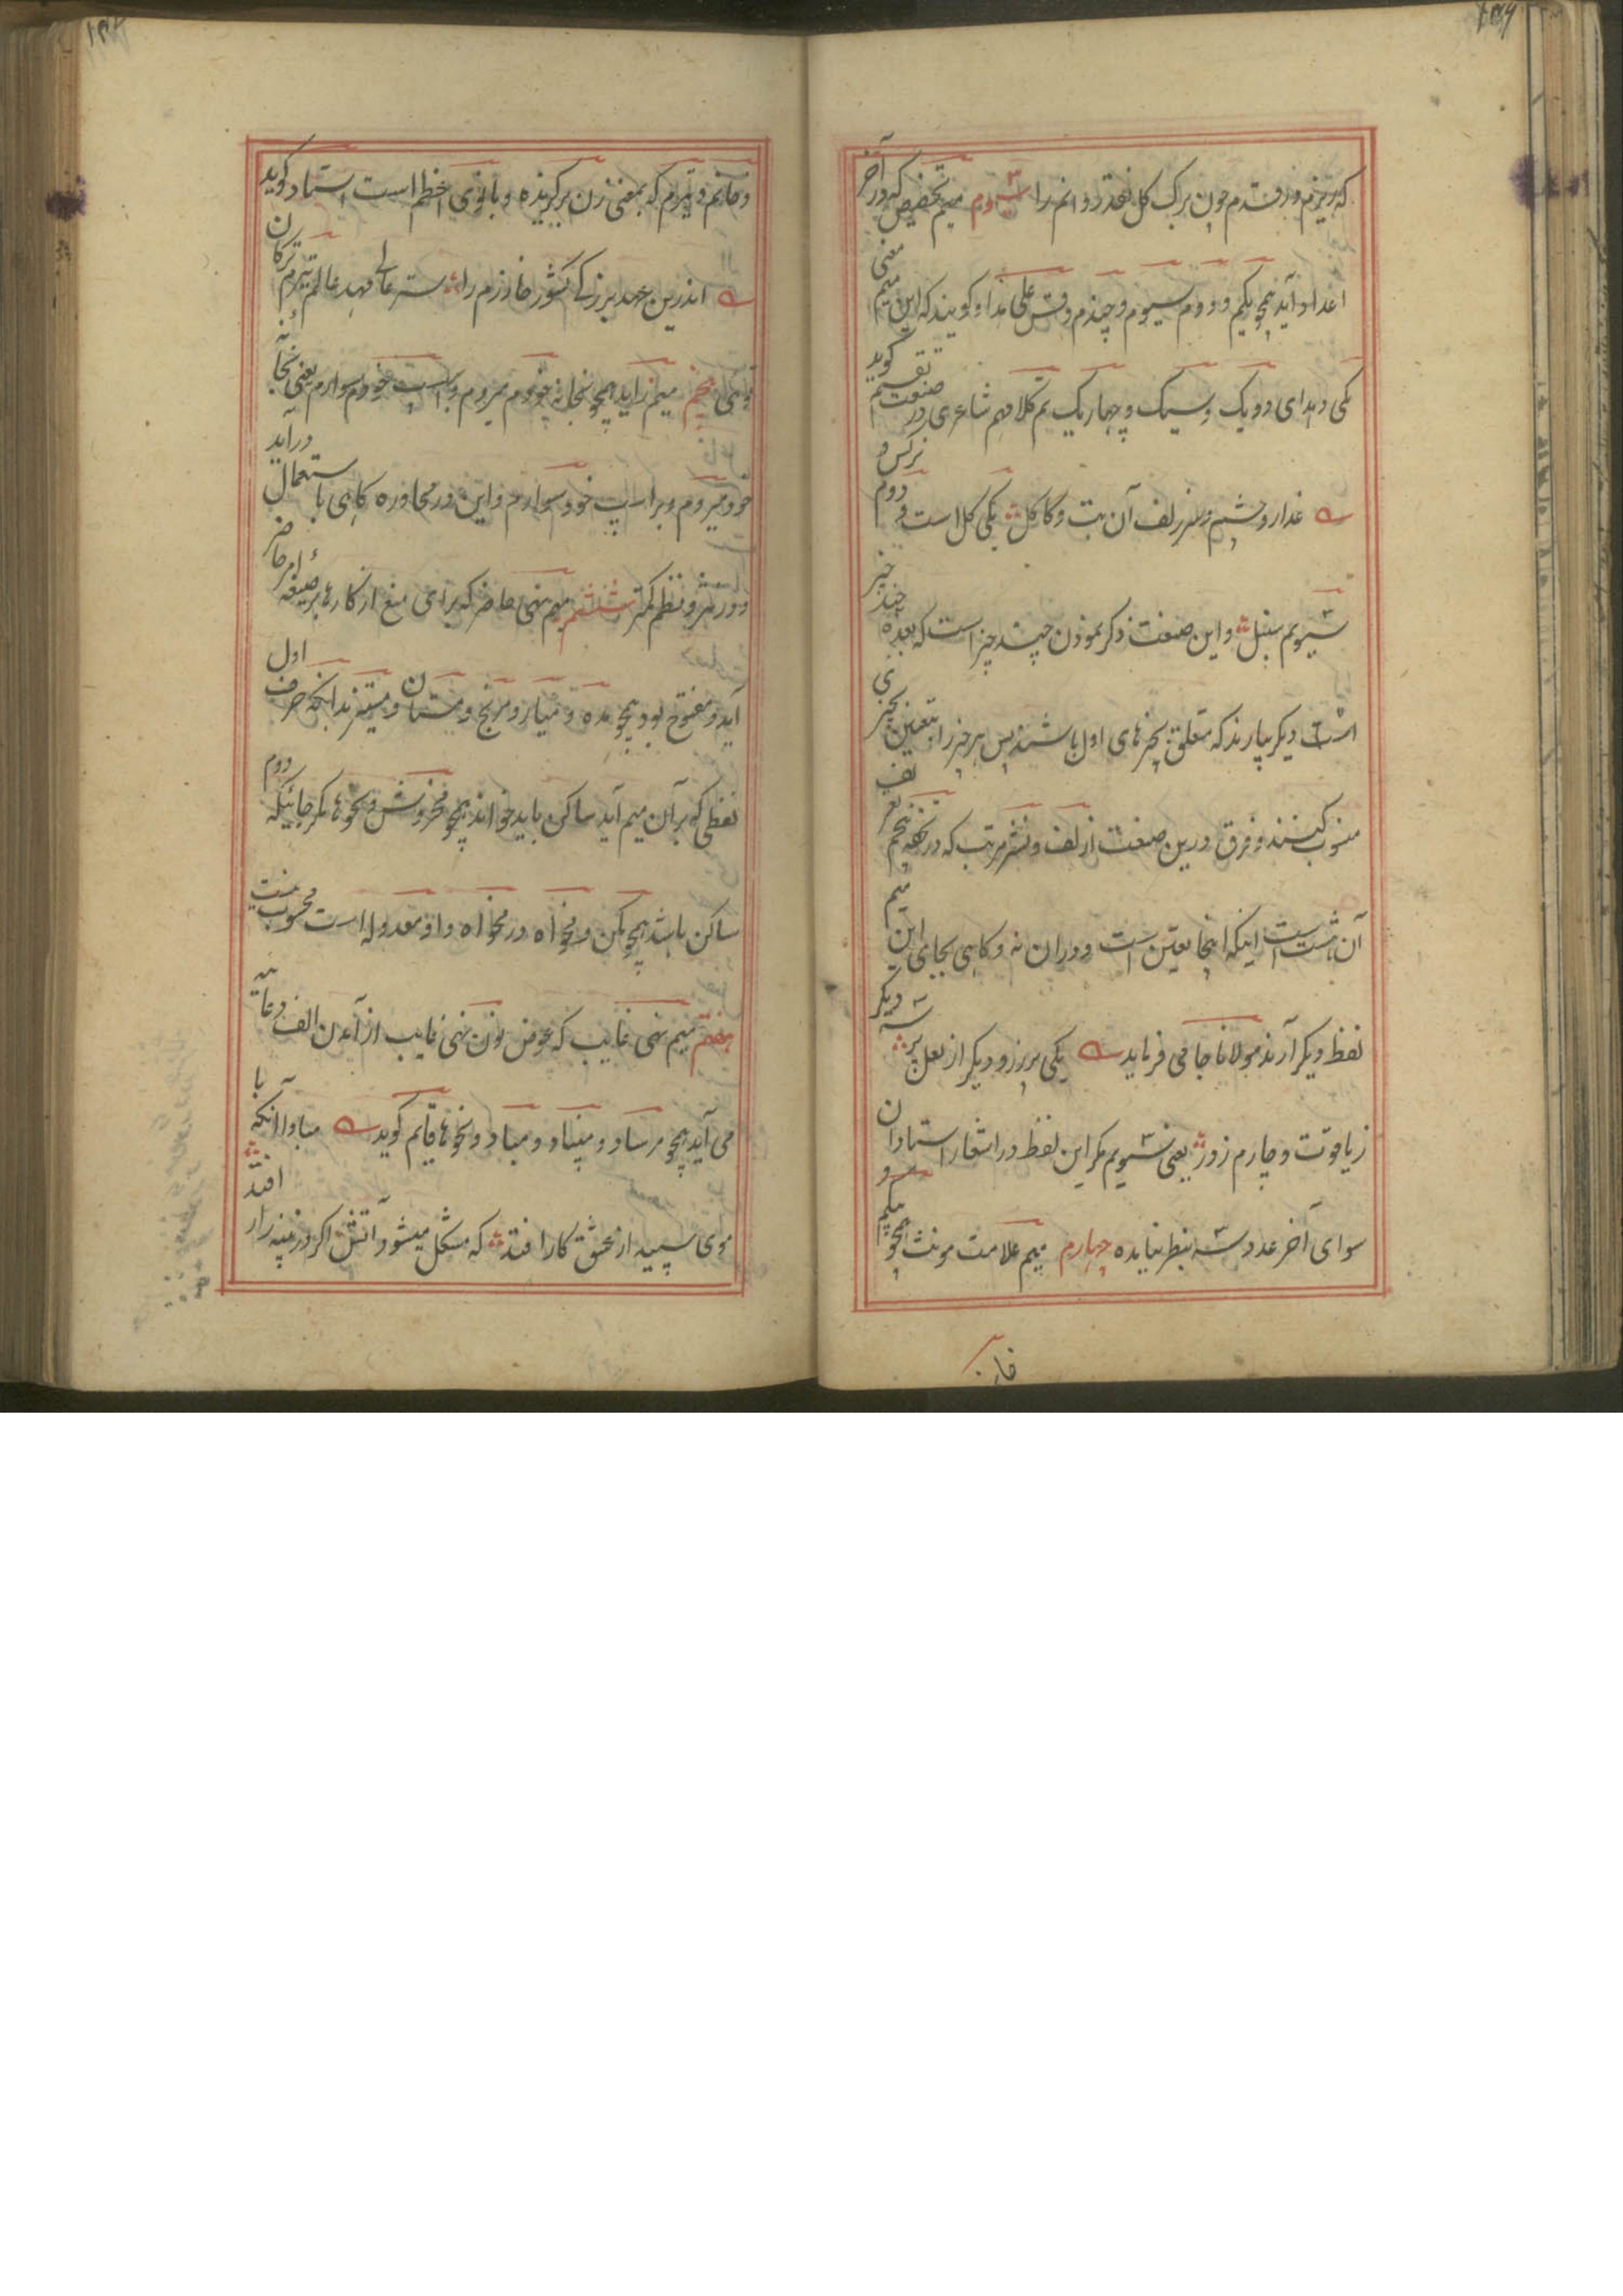 که بریزم در قدم چون برگ گل نقد روانم را سیوم میم تخصیص که در آخر
اعداد آید همچو یکم و دوم سیوم و چندم وقس علی هذا و گویند که این میم معنی
یکی دهد ای دو یک و سیک و چهار یک تم کلامهم شاعری در صنعت تقسیم گوید
عذار و چشم و سر زلف آن بت و کاکل یکی گل است و دوم نرگس و
سیوم سنبل و این صنعت ذکر نمودن چند چیز است که بعده چند چیز
دیگر بیارند که متعلق بچیزهای اول باشند پس هر چیز را بتعین بچیزی
منسوب کنند و فرق درین صنعت از لف و نشر مرتب که در نعم تف
آنست اینکه اینجا تعین است و دران نه و گاهی بجای این میم
لفظ دیگر آرند مولانا جامی فرماید یکی پر زر و دیگر از لعل پر سه دیگر
ز یاقوت و چارم ز در یعنی سیوم مگر این لفظ در اشعار استادان
سوای آخر عدد سه بنظر نیامده چهارم میم علامت مونث همچو بیگم و
خان
و خانم و تیرم که بمعنی زن برگزیده و بانوی اعظم است استاد گوید
اندرین عهد بزرگی کشور خوارزم را ستر عالی مهد عالم تیرم ترکان
توئی پنجم میم زاید همچو بخانه خودم میروم و براسپ خودم سوارم یعنی بخانه
خود میروم و براسپ خود سوارم و این در محاوره گاهی باستعمال درآید
و در نثر و نظم کمتر ششم میم نهی حاضر که برای منع از کارها بر صیغه امر حاضر
آید و مفتوح بود همچو مده و میازار و مرنج و مستان و مستیز بدانکه حرف اول
لفظی که بر آن میم آید ساکن باید خواند همچو مخروش و نحوها مگر جائیکه دوم
ساکن باشد همچو مکن و مخواه و در مخواه واو معدوله است محسوب نیست
هفتم میم نهی غایب که عوض نون نهی غایب از آمدن الف دعائیه
می آید همچو مرساد و مبیناد و مباد و نحوها قایم گوید مبادا آنکه با
موی سپید از عشق کار افتد که مشکل میشود آتش اگر در پنبه زار افتد